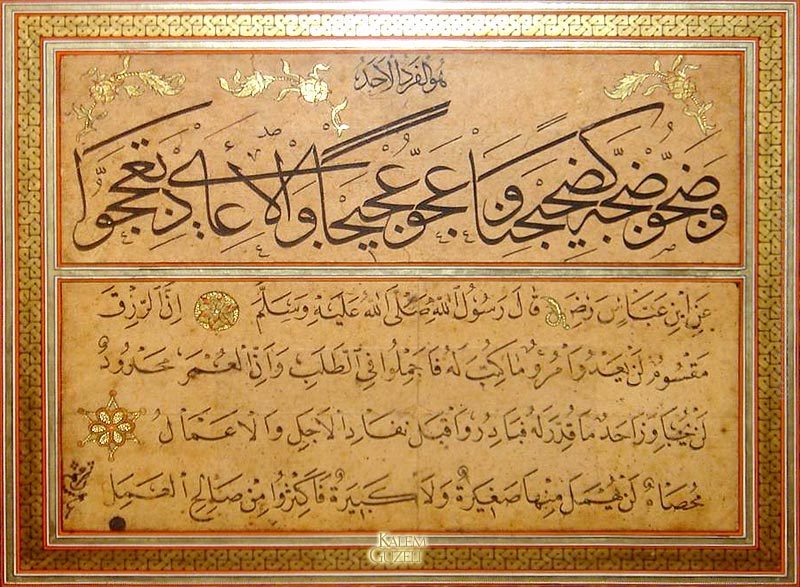 هو الفرد الاحد
وضجوا ضجة كضجيجنا وعجوا عجيجا والاعادي تعججوا
عن ابن عباس رضي قال رسول الله صلى الله عليه وسلم ان الرزق
مقسوم لن يعدو امرؤ ما كتب له فاجملوا في الطلب وان العمر محدود
لن يجاوز احد ما قدر له فبادروا قبل نفاد الاجل والاعمال
محصاة لن يهمل منها صغيرة ولا كبيرة فاكثروا من صالح العمل
KALEM
GÜZELİ